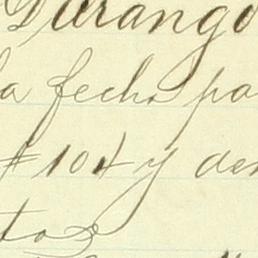 Durango
la fecha pa
# 104 y den
tos